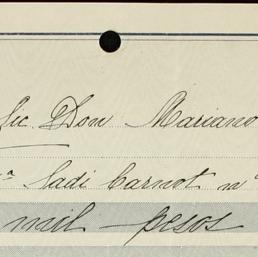 Lic. Don Mariano
a Sadi Carnot nº
mil pesos